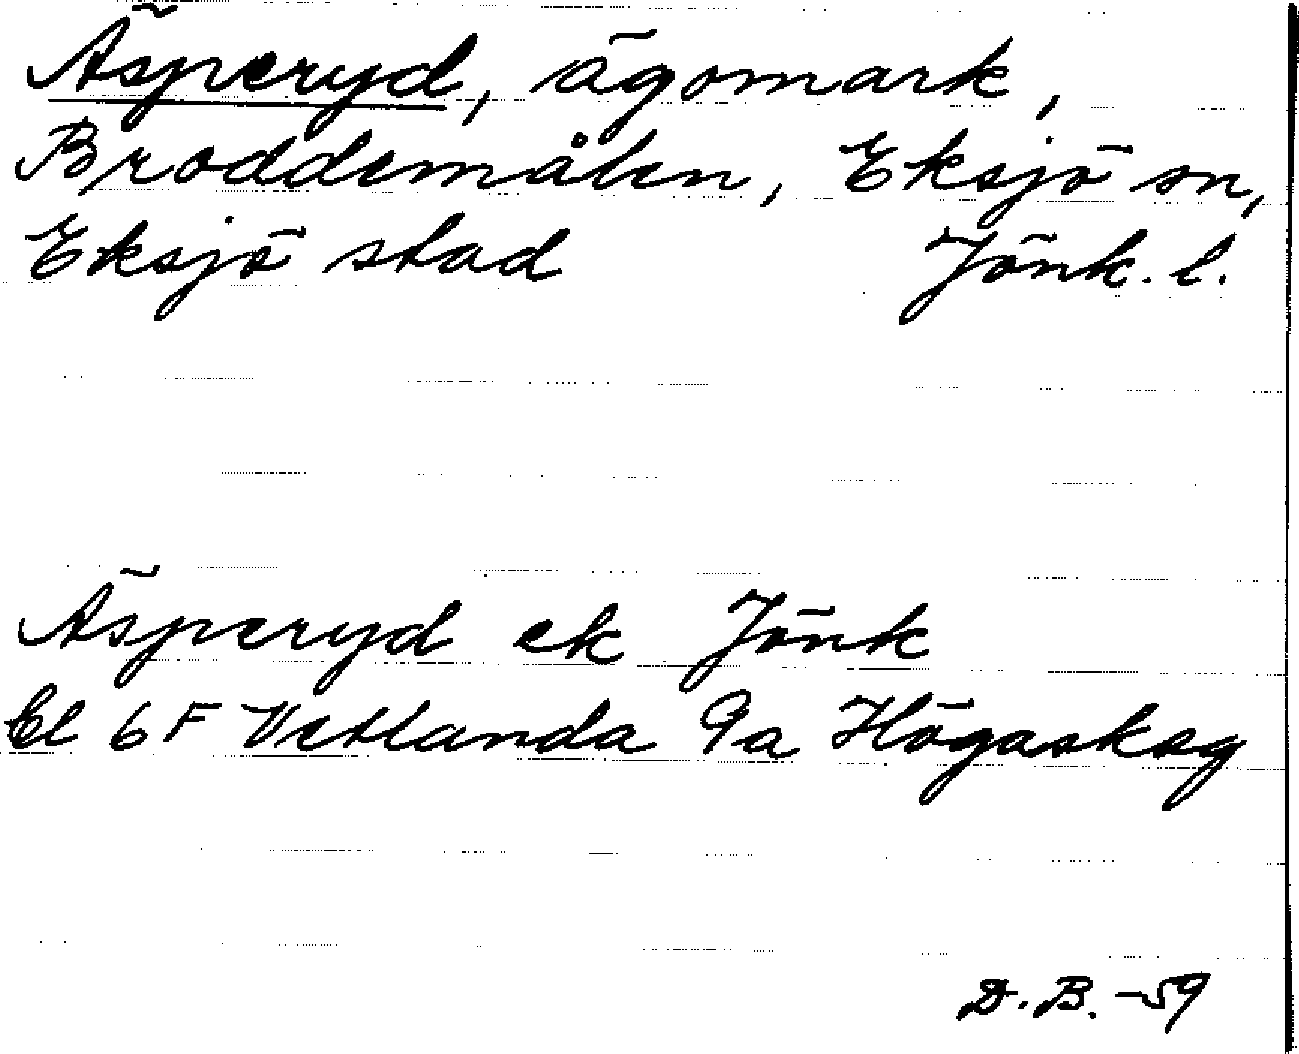 Äsperyd, ägomark,
Broddemålen, Eksjö sn,
Eksjö stad Jönk. l.
Äsperyd ek Jönk
Bl 6F Vetlanda 9a Högaskog
D.B. -59